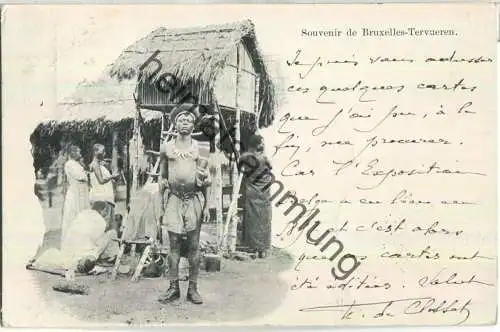 Souvenir de Bruxelles-Tervueren.
Je puis vous adresser
ces quelques cartes
que j'ai pu, à la
fin, me procurer.
Car l'Exposition
Belge a eu lieu en
et c'est alors
que ces cartes ont
été éditées. Salut
heimat-sammlung.com